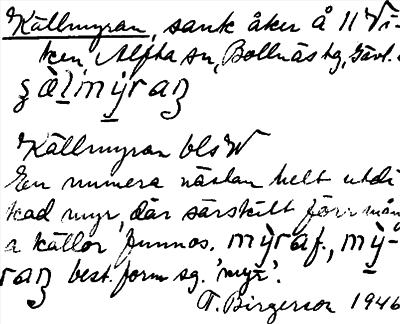 Källmyran, sank åker å 11 Vi-
ken, Alfta sn, Bollnäs tg, Gävl.
Källmyran bls W
En numera nästan helt utdi
kad myr, där särskilt förr mån
a källor funnos. mỳraf., mỳ-
raŋ best. form sg. 'myr'.
T. Birgerson 1946